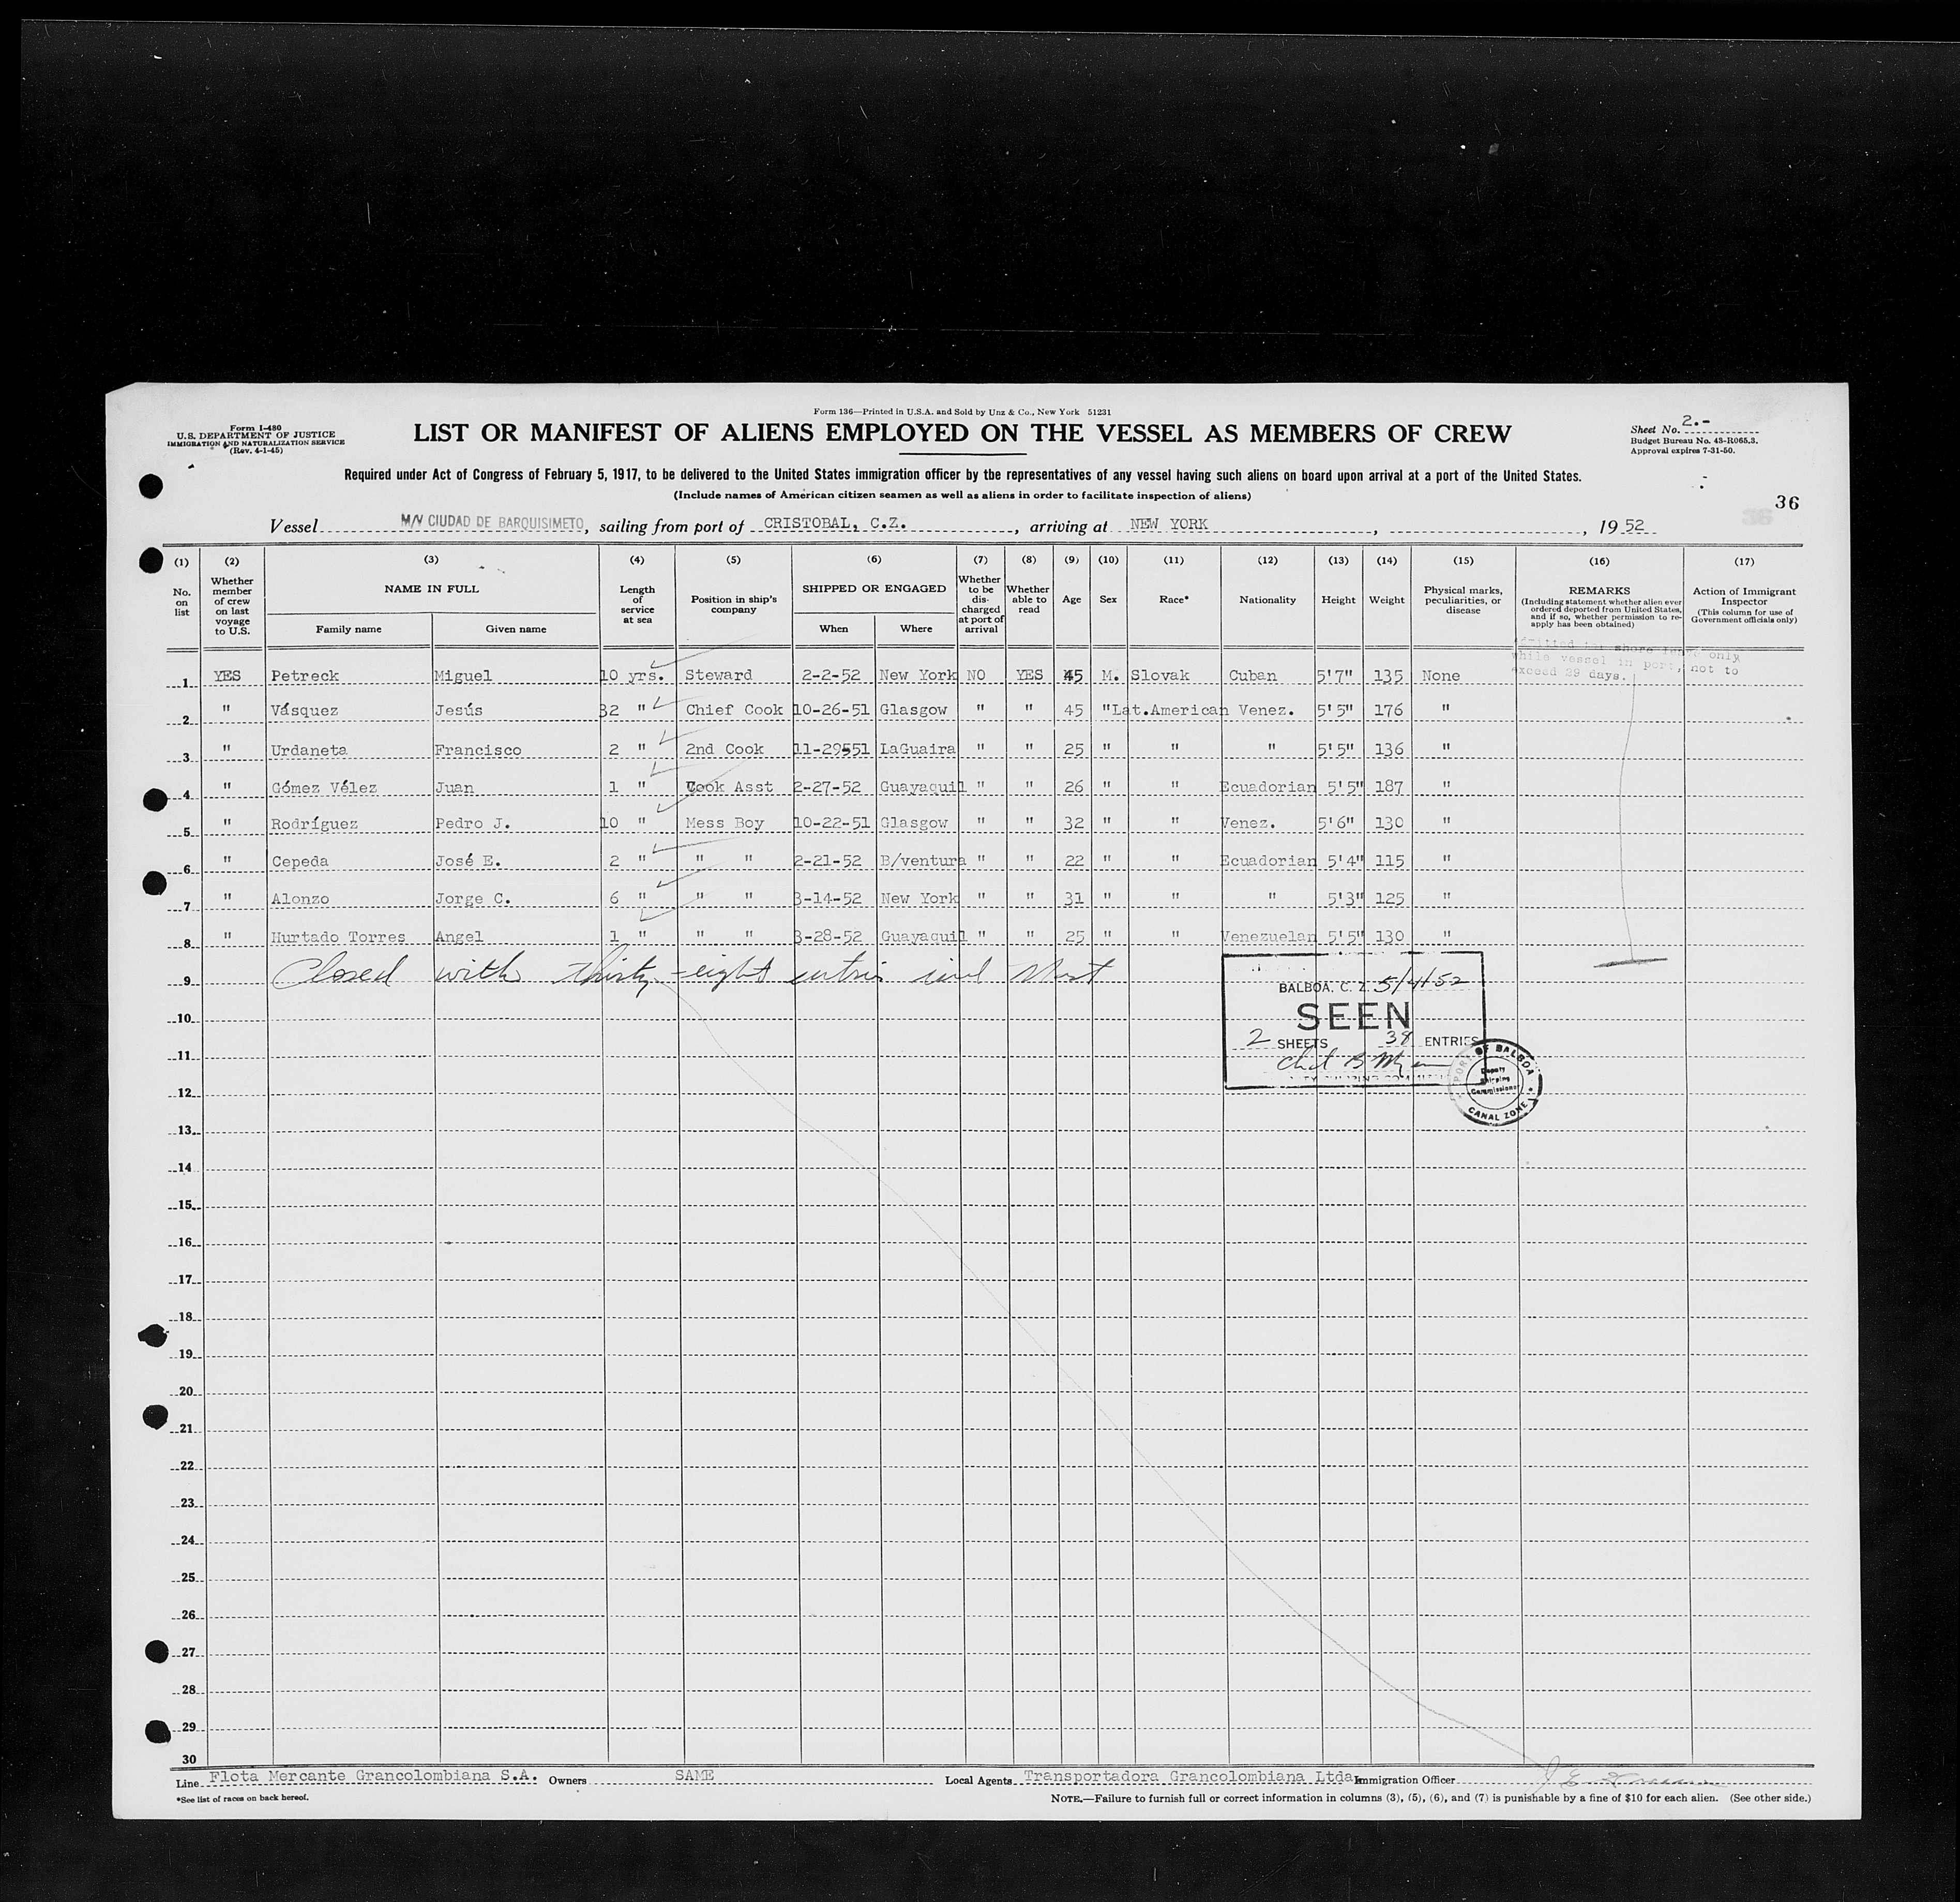 Form 136—Printed in U.S.A. and Sold by Unz & Co., New York 51231
Form I-480
U.S. DEPARTMENT OF JUSTICE
IMMIGRATION AND NATURALIZATION SERVICE
(Rev. 4-1-45)
LIST OR MANIFEST OF ALIENS EMPLOYED ON THE VESSEL AS MEMBERS OF CREW
Sheet No. 2.-
Budget Bureau No. 43-R065.3.
Approval expires 7-31-50.
Required under Act of Congress of February 5, 1917, to be delivered to the United States immigration officer by the representatives of any vessel having such aliens on board upon arrival at a port of the United States.
(Include names of American citizen seamen as well as aliens in order to facilitate inspection of aliens)
36
Vessel M/V CIUDAD DE BARQUISIMETO, sailing from port of CRISTOBAL, C.Z., arriving at NEW YORK, , 19 52
(1) No. on list
(2) Whether member of crew on last voyage to U.S.
(3) NAME IN FULL Family name Given name
(4) Length of service at sea
(5) Position in ship's company
(6) SHIPPED OR ENGAGED When Where
(7) Whether to be discharged at port of arrival
(8) Whether able to read
(9) Age
(10) Sex
(11) Race*
(12) Nationality
(13) Height
(14) Weight
(15) Physical marks, peculiarities, or disease
(16) REMARKS (Including statement whether alien ever ordered deported from United States, and if so, whether permission to re-apply has been obtained)
(17) Action of Immigrant Inspector (This column for use of Government officials only)
Admitted for shore leave only
while vessel in port, not to
exceed 29 days.
1 YES Petreck Miguel 10 yrs. Steward 2-2-52 New York NO YES 45 M. Slovak Cuban 5'7" 135 None
2 " Vásquez Jesús 32 " Chief Cook 10-26-51 Glasgow " " 45 " Lat.American Venez. 5'5" 176 "
3 " Urdaneta Francisco 2 " 2nd Cook 11-29551 LaGuaira " " 25 " " " 5'5" 136 "
4 " Gómez Vélez Juan 1 " Cook Asst 2-27-52 Guayaquil " " 26 " " Ecuadorian 5'5" 187 "
5 " Rodríguez Pedro J. 10 " Mess Boy 10-22-51 Glasgow " " 32 " " Venez. 5'6" 130 "
6 " Cepeda José E. 2 " " " 2-21-52 B/ventura " " 22 " " Ecuadorian 5'4" 115 "
7 " Alonzo Jorge C. 6 " " " 3-14-52 New York " " 31 " " " 5'3" 125 "
8 " Hurtado Torres Angel 1 " " " 3-28-52 Guayaquil " " 25 " " Venezuelan 5'5" 130 "
9 Closed with thirty-eight entries incl Mast
BALBOA, C. Z. 5/4/52
SEEN
2 SHEETS 38 ENTRIES
PORT OF BALBOA
Deputy
Shipping
Commissioner
CANAL ZONE
10
11
12
13
14
15
16
17
18
19
20
21
22
23
24
25
26
27
28
29
30
Line Flota Mercante Grancolombiana S.A. Owners SAME Local Agents Transportadora Grancolombiana Ltda. Immigration Officer
*See list of races on back hereof.
NOTE.—Failure to furnish full or correct information in columns (3), (5), (6), and (7) is punishable by a fine of $10 for each alien. (See other side.)